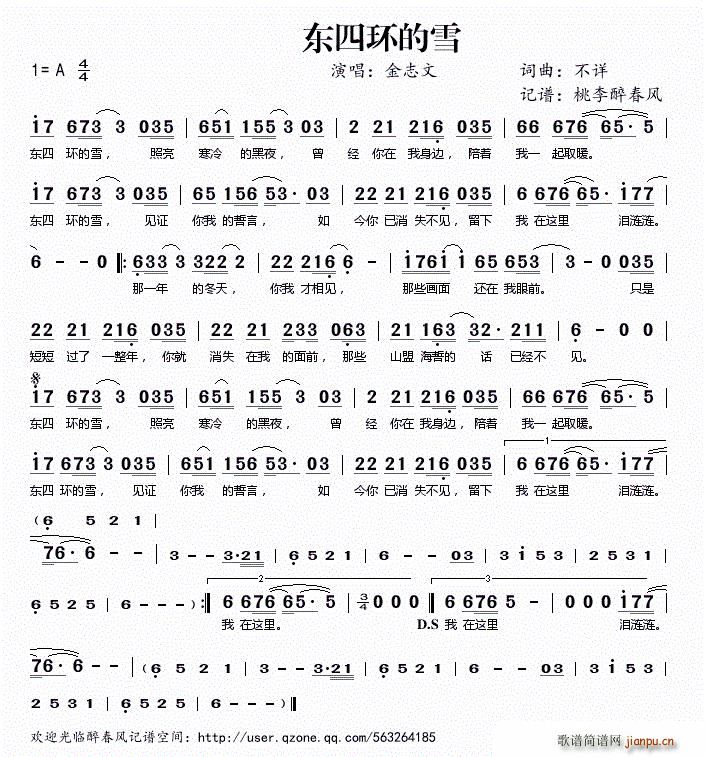 东四环的雪
1=A 4/4 演唱：金志文 词曲：不详
记谱：桃李醉春风
i7 673 3 035 | 651 155 3 03 | 2 21 216 035 | 66 676 65· 5 |
东四 环的雪， 照亮 寒冷 的黑夜， 曾 经 你在 我身边， 陪着 我一 起取暖。
i7 673 3 035 | 65 156 53· 03 | 22 21 216 035 | 6 676 65· i77 |
东四 环的雪， 见证 你我 的誓言， 如 今你 已消 失不见， 留下 我 在这里 泪涟涟。
6 - - 0 ‖: 633 3 322 2 | 22 216 6 - | i76i i 65 653 | 3 - 0 035 |
那一年 的冬天， 你我 才相见， 那些画面 还在 我眼前。 只是
22 21 216 035 | 22 21 233 063 | 21 163 32· 211 | 6 - 0 0 |
短短 过了 一整年， 你就 消失 在我 的面前， 那些 山盟 海誓的 话 已经不 见。
i7 673 3 035 | 651 155 3 03 | 2 21 216 035 | 66 676 65· 5 |
东四 环的雪， 照亮 寒冷 的黑夜， 曾 经 你在 我身边， 陪着 我一 起取暖。
1
i7 673 3 035 | 651 156 53· 03 | 22 22 216 035 | 6 676 65· i77 |
东四 环的雪， 见证 你我 的誓言， 如 今你 已消 失不见， 留下 我 在这里 泪涟涟。
（6 5 2 1 |
76· 6 - - | 3 - - 3·21 | 6 5 2 1 | 6 - - 03 | 3 i 5 3 | 2 5 2 1 |
2 3
6 5 2 5 | 6 - - - ）:‖ 6 676 65· 5 | 3/4 0 0 0 ‖ 6 676 5 - | 0 0 0 i77 |
我 在这里。 D.S 我 在这里 泪涟涟。
76· 6 - - |（6 5 2 1 | 3 - - 3·21 | 6 5 2 1 | 6 - - 03 | 3 i 5 3 |
2 5 3 1 | 6 5 2 5 | 6 - - - ）‖
欢迎光临醉春风记谱空间：http://user.qzone.qq.com/563264185
歌谱简谱网 jianpu.cn